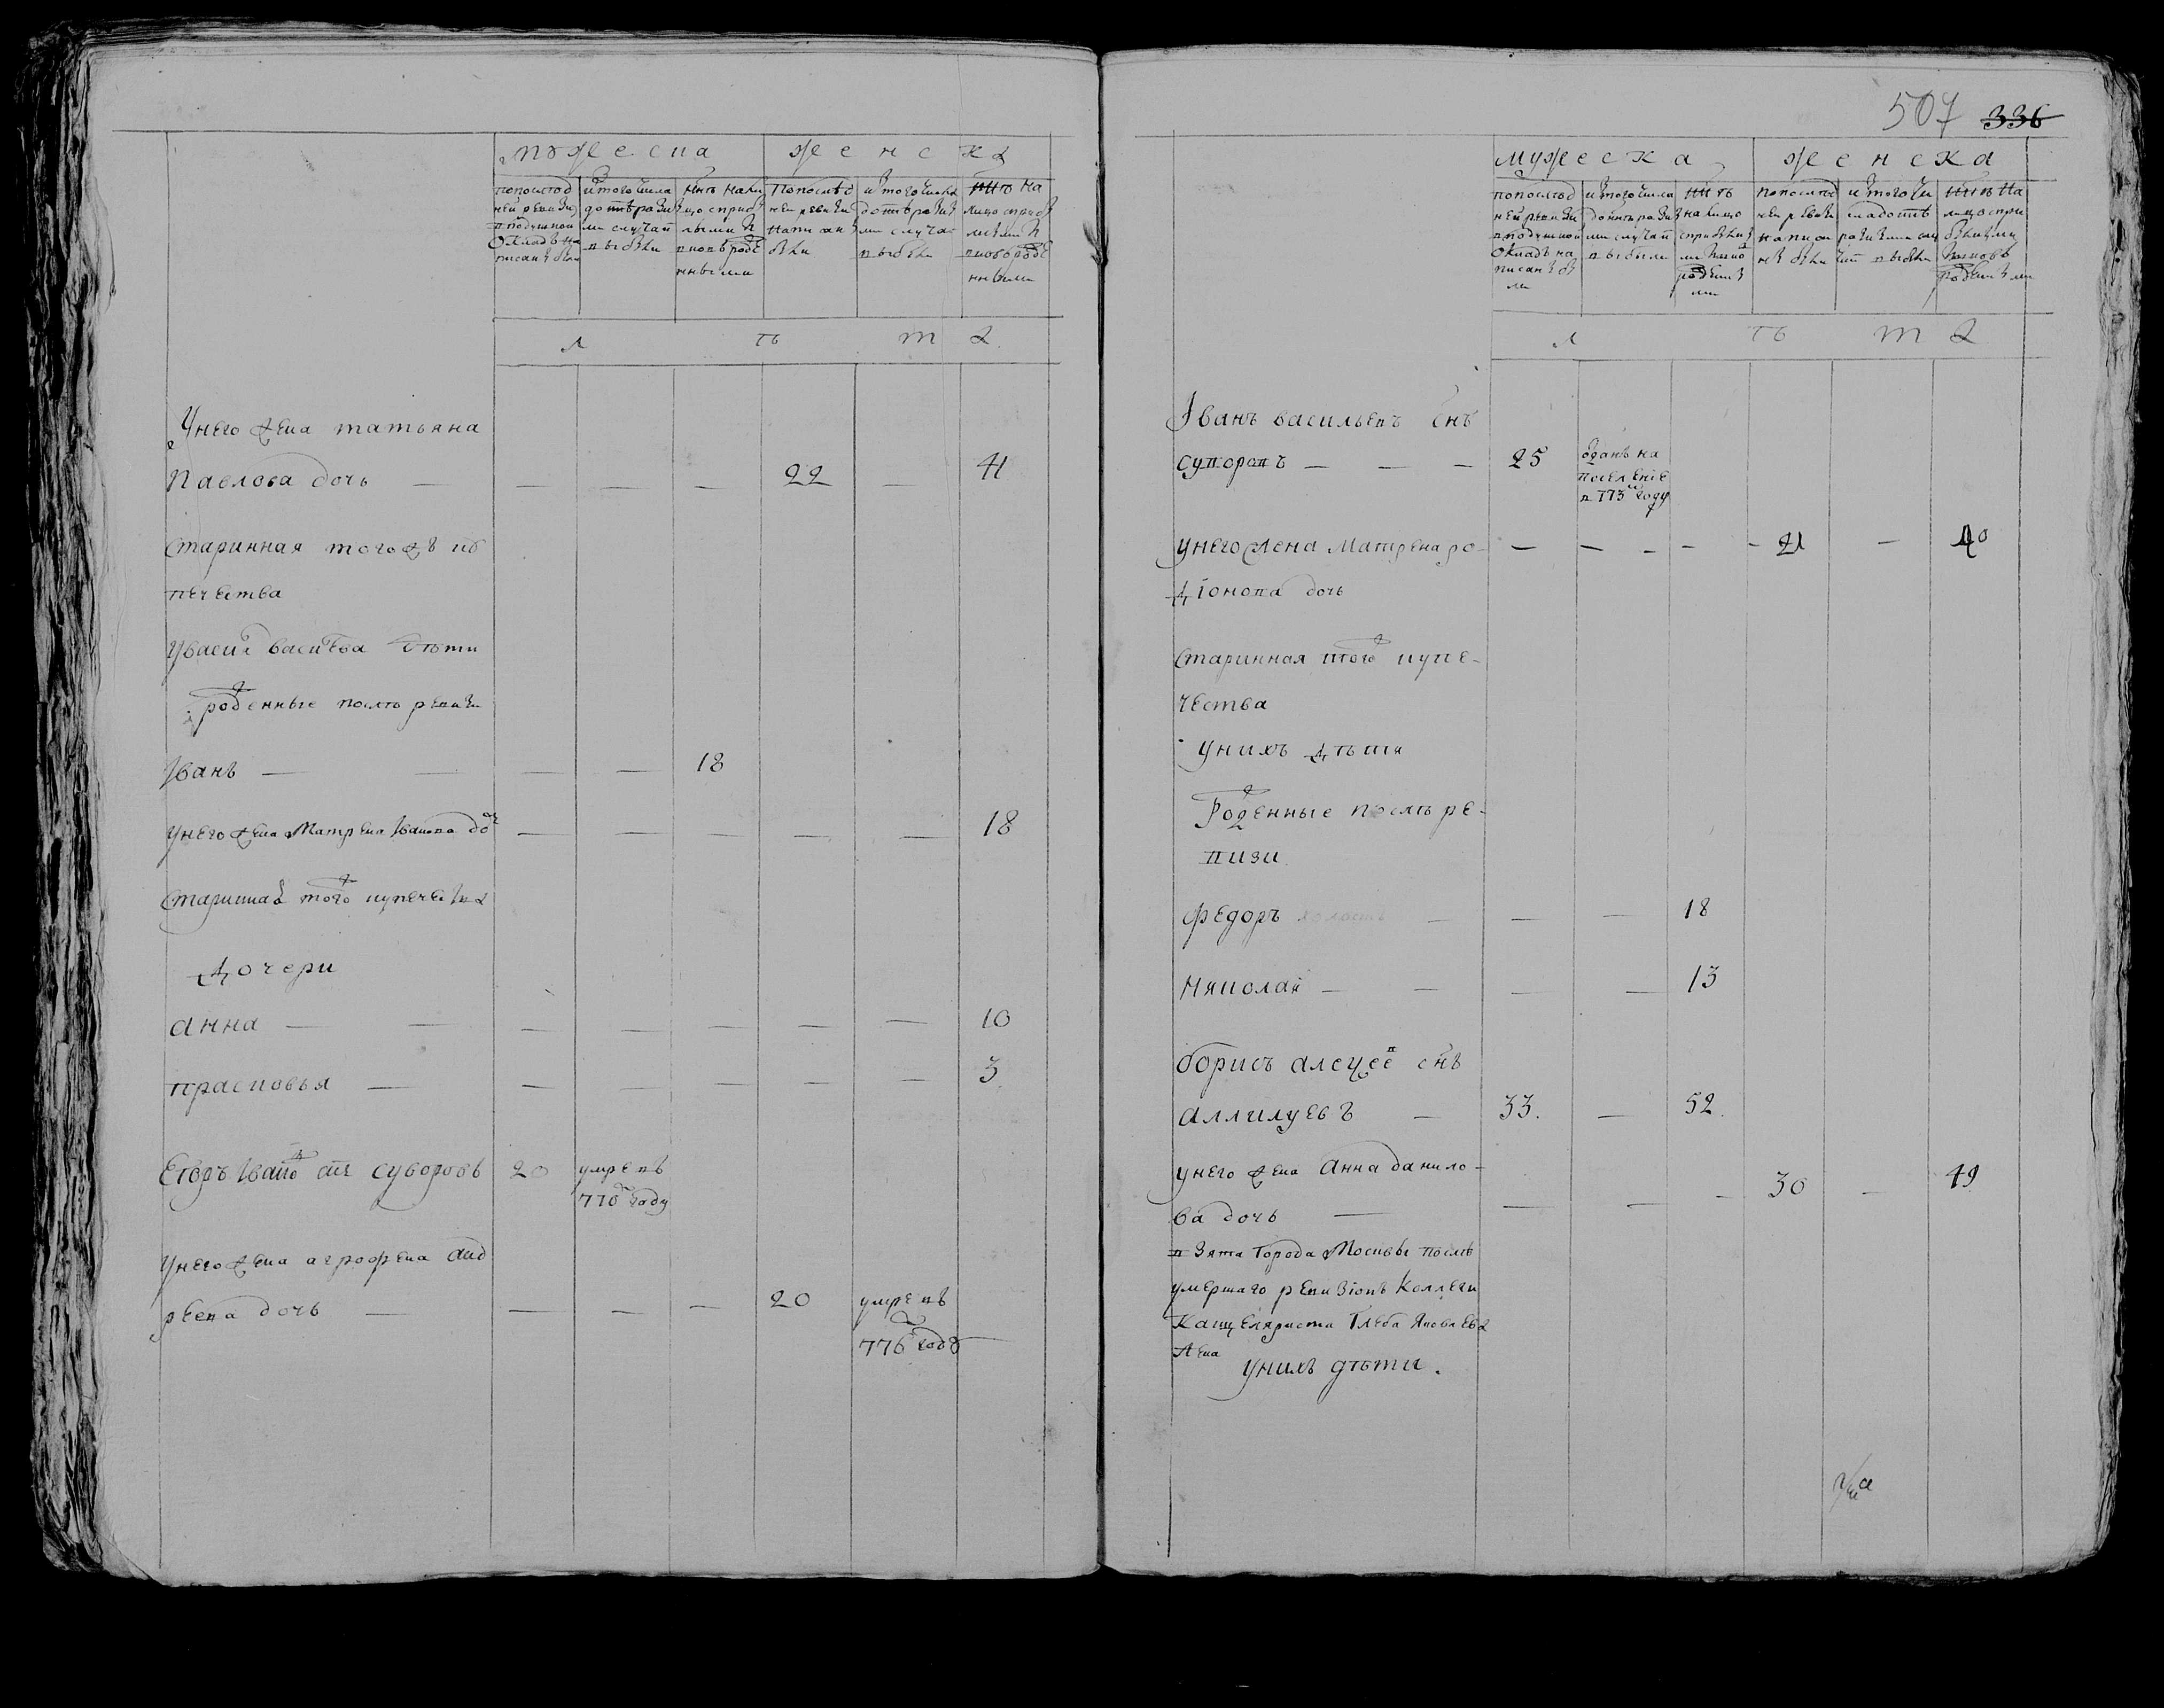 мужеска женска
попослѣд
ней ревизи
вподушной
окладъ на
писаны были
изтого числа
до нынѣ разны
ми случаи
выбыли
нынѣ нали
цо сприб
лыми и
вновь рожде
нными
попослѣд
ней ревизи
написан
были
изтого числа
до нынѣ разны
ми случаи
выбыли
нынѣ на
лицо сприб
лыми и
вново рожде
нными
лѣта
Унего жена татьяна
Павлова дочь — — — — 22 — 41
старинная тогожъ ку
печества
Уваси васильева дѣти
рожденные послѣ ревизи
Иванъ — — — — 18
унего жена Матрена Иванова дочь — — — — — 18
старинная тогож купечества
Дочери
анна — — — — — — — 10
прасковья — — — — — — 3
Егоръ Ивановъ снъ суворовъ 20 умре въ
770 году
Унего жена агрофена анд
реева дочь — — — — 20 умре въ
776 году
507 336
мужеска женска
попослѣд
ней ревизи
вподушной
окладъ на
писаны бы
ли
изтого числа
до нынѣ разны
ми случаи
выбыли
нынѣ
налицо
сприбылы
ми и вно
рожденны
ми
попослѣд
ней ревизи
написа
ны были
изтого чи
сла до нынѣ
разными слу
чаи выбыли
нынѣ на
лицо спри
былыми
и вновь
рожденными
лѣта
Иванъ васильевъ снъ
суворовъ — — — 25 зданъ на
поселение
в 773 м году
унего жена Матрена ро-
дионова дочь — — — — — 21 — 40
старинная того ж купе-
чества
унихъ дѣти
Рожденные послѣ ре-
визи
Федоръ холостъ — — — 18
Николай — — — — 13
борисъ алексеевъ снъ
аллилуевъ — 33. — 52.
унего жена Анна данило-
ва дочь — — — — 30 — 49
взята города Москвы послѣ
умершаго ревизионъ Коллеги
Канцеляриста Глеба Яковлева
жена
унихъ дѣти.